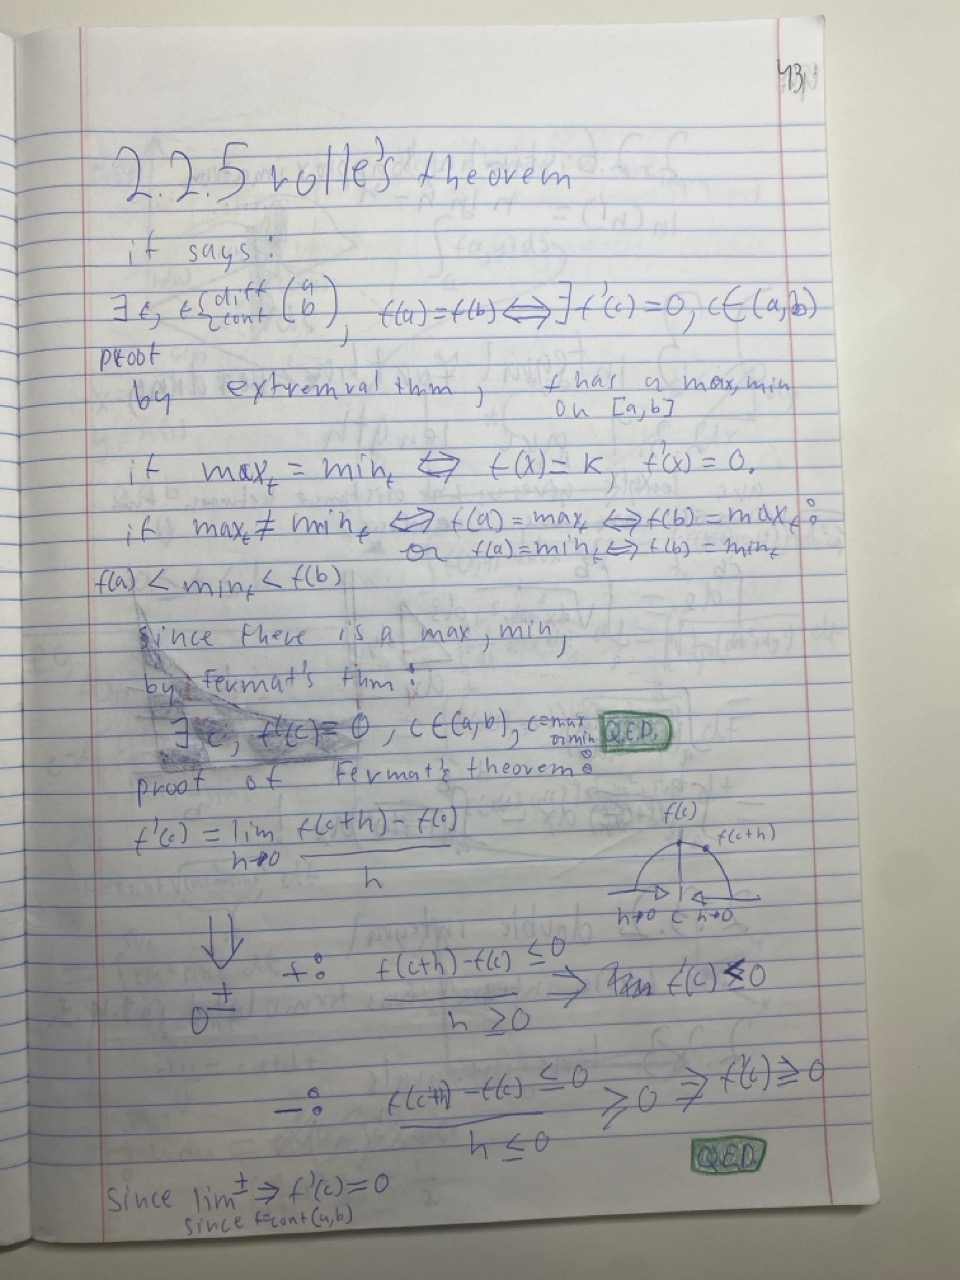 43,
2.2.5 rolle's theorem
it says:
∃ f, f { diff cont (a b), f(a) = f(b) ⇔ ∃ f'(c) = 0, c ∈ (a,b)
proof
by extremval thm, f has a max, min
on [a,b]
if max_f = min_f ⇔ f(x) = K, f'(x) = 0.
if max_f ≠ min_f ⇔ f(a) = max_f ⇔ f(b) = max_f :
or f(a) = min_f ⇔ f(b) = min_f
f(a) < min_f < f(b)
since there is a max, min,
by Fermat's thm:
∃ c, f'(c) = 0, c ∈ (a,b), c = max or min Q.E.D.
proof of Fermat's theorem:
f'(c) = lim h→0 f(c+h) - f(c) / h
f(c)
f(c+h)
h→0 c h→0
⇓
0±
+: f(c+h) - f(c) ≤ 0 / h ≥ 0 ⇒ f'(c) ≤ 0
-: f(c+h) - f(c) ≤ 0 / h ≤ 0 ≥ 0 ⇒ f'(c) ≥ 0
Q.E.D.
Since lim± ⇒ f'(c) = 0
since f = cont (a,b)